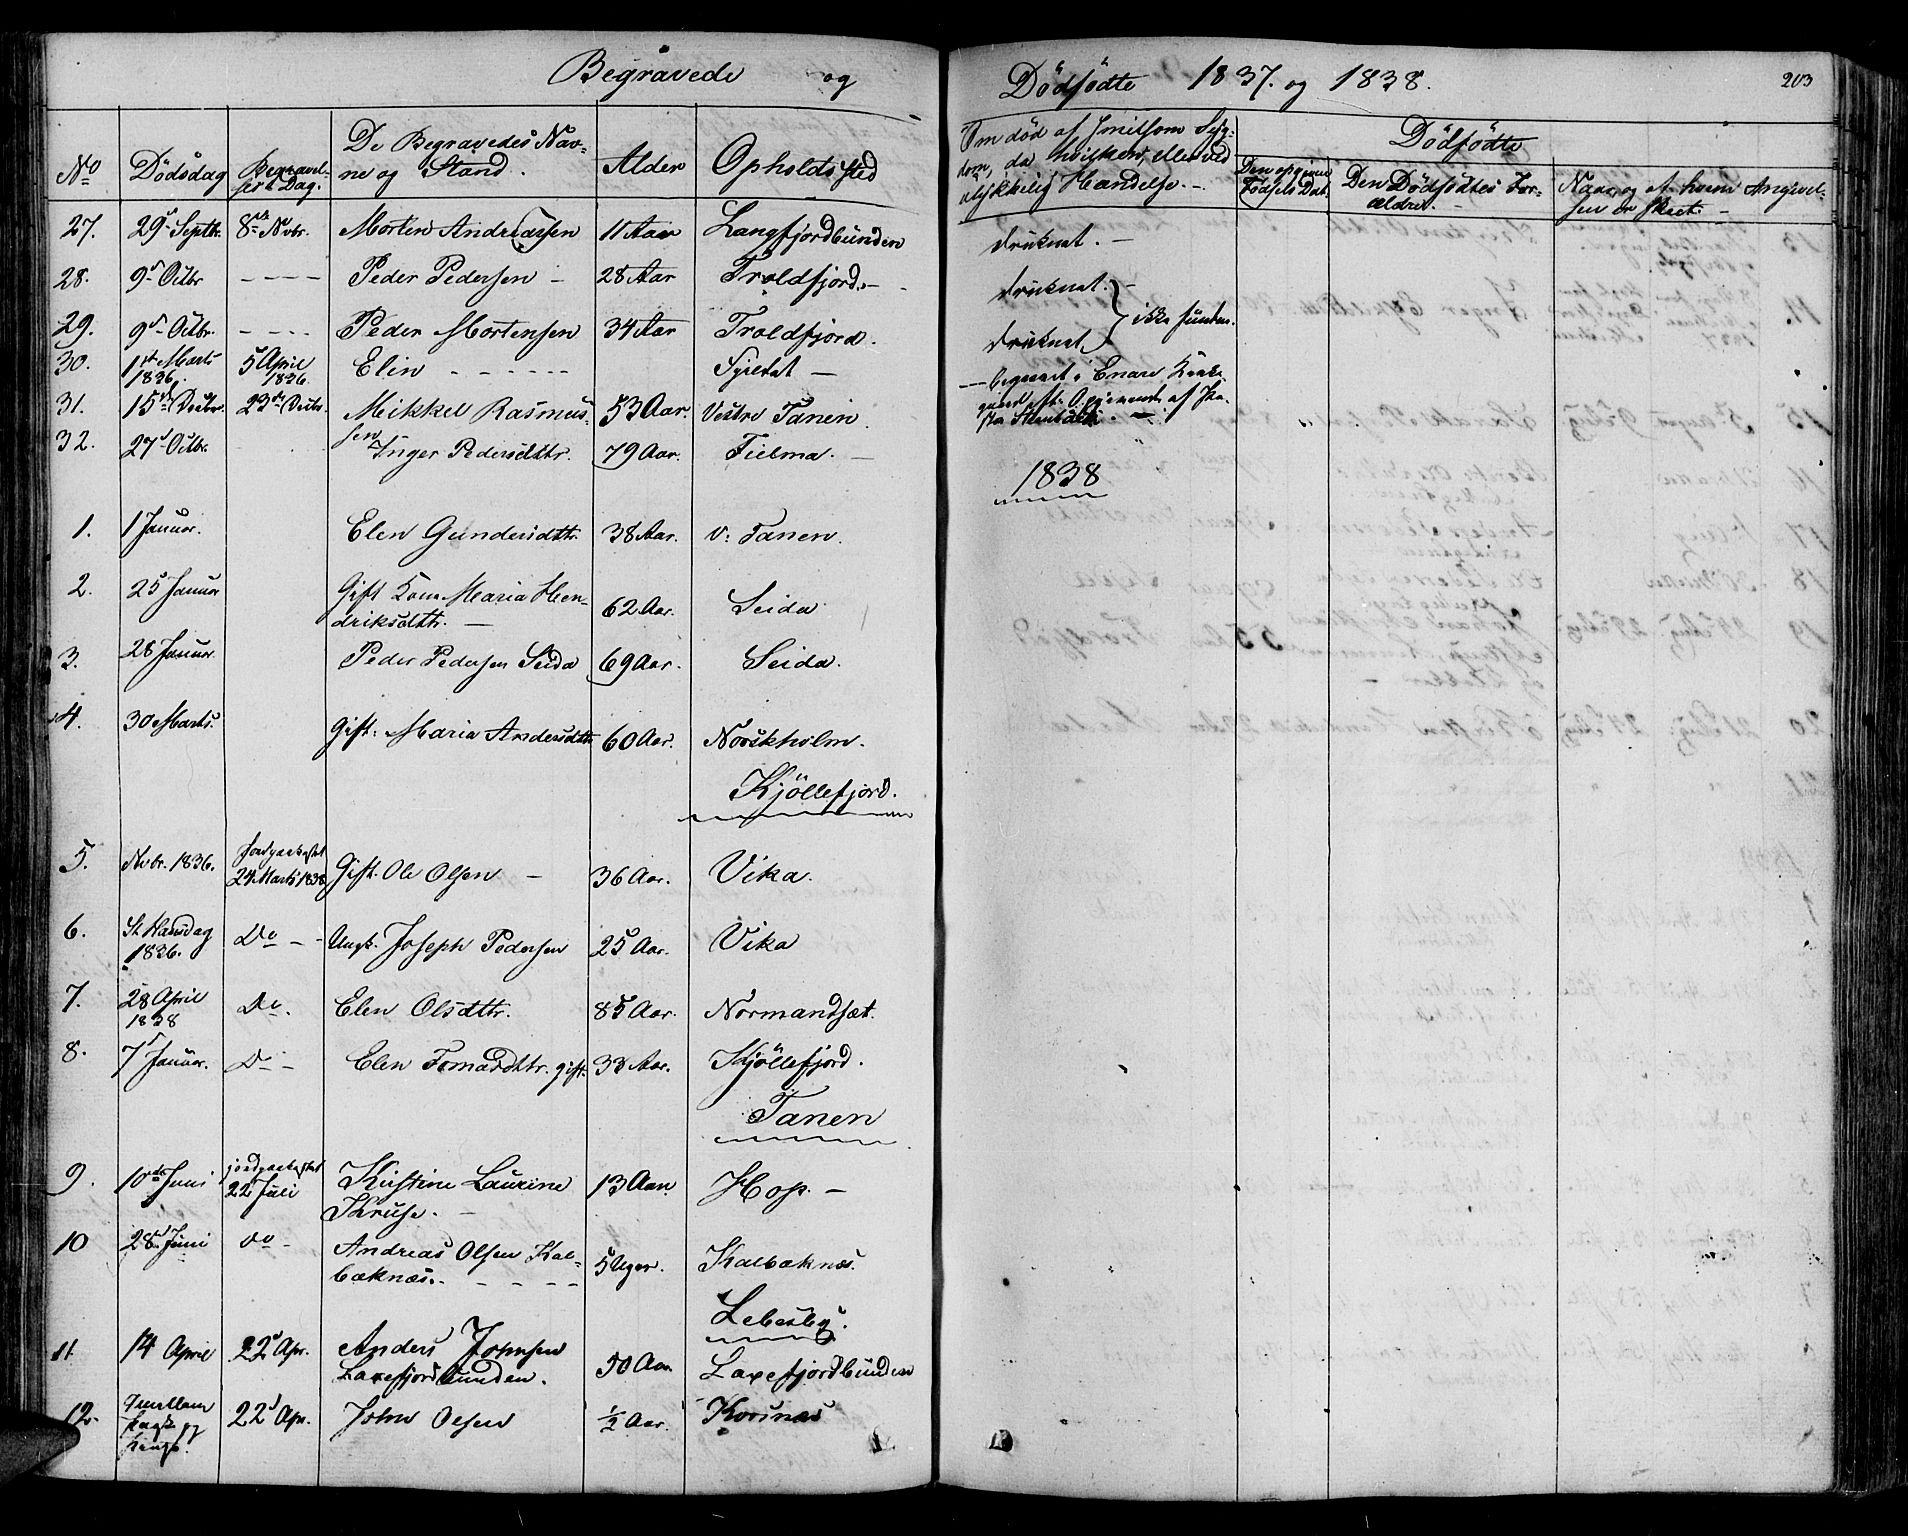 Begravede og
Dödfödte 1837. og 1838.
203
No
Dödsdag
Begravel-
sens Dag.
De Begravedes Nav-
ne og Stand.
Alder
Opholdssted
Om död af smitsom Syg-
dom, da hvilken, eller ved
ulykkelig Hændelse. -
Dödfödte
Den opgivne
Födsels Dat.
Den Dödfödtes For-
ældre. -
Naar, og af hvem Angivel-
sen er skeet. -
27. 29d Septbr. 8de Nvbr. Morten Andreassen 11 Aar Langfjordbunden druknet. -
28. 9d Octbr - - - - Peder Pedersen - 28 Aar Troldfjord. - druknet. -
ikke funden.
29. 9d Octbr. - - - - Peder Mortensen 34 Aar Troldfjord. druknet
30. 1st Marts
1836. 5 April
1836. Elin - - - - - - - begravet i Enare Kirke
gaard
31. 15de Decbr. 23de Decbr. Mikkel Rasmus-
sen 53 Aar. Vestre Tanen
32. 27d Octbr. Inger Pedersdttr. 79 Aar. Fielma. -
1838
1. 1 Januar. Elen Gundersdttr. 38 Aar. v: Tanen.
2. 25 Januar Gift Kone Maria Hen-
driksdttr. - 62 Aar. Seida
3. 28 Januar. Peder Pedersen Seida 69 Aar. Seida.
4. 30 Marts. Gift: Maria Andersdttr. 60 Aar. Norskholm.
Kjöllefjord.
5. Nvbr. 1836. Jordpaakastet
24 Marts 1838 Gift. Ole Olsen - 36 Aar. Vika.
6. St. Hansdag
1836. Do - - Ungk. Joseph Pedersen 25 Aar. Vika
7. 28 April
1838 Do. Elen Olsdttr. 85 Aar. Normandsæt.
8. 7d Januar. D - - Elen Tomasdttr. gift. 33 Aar. Kjöllefjord.
Tanen
9. 10de Juni jordpaakastet
22 Juli Kirstine Laurine
Kruse. - 13 Aar. Hop. -
10 28d Juni do - Andreas Olsen Kal-
bæknæs. - - - - 5 Uger. Kalbæknæs.
Lebesby.
11. 14 April 22d Apr. Anders Johnsen
Laxefjordbunden. 50 Aar Laxefjordbunden
12. Imellem
22d Apr. John Olsen ½ Aar. Korsnæs